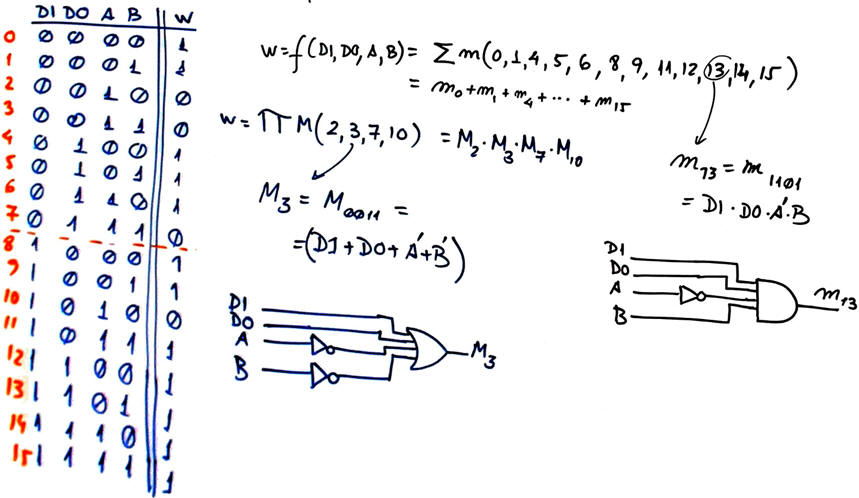 D1 D0 A B W
0 0 0 0 0 1
1 0 0 0 1 1
2 0 0 1 0 0
3 0 0 1 1 0
4 0 1 0 0 1
5 0 1 0 1 1
6 0 1 1 0 1
7 0 1 1 1 0
8 1 0 0 0 1
9 1 0 0 1 1
10 1 0 1 0 0
11 1 0 1 1 1
12 1 1 0 0 1
13 1 1 0 1 1
14 1 1 1 0 1
15 1 1 1 1 1
W = f(D1, D0, A, B) = ∑ m(0, 1, 4, 5, 6, 8, 9, 11, 12, 13, 14, 15)
= m0 + m1 + m4 + ... + m15
W = ∏ M(2, 3, 7, 10) = M2 · M3 · M7 · M10
M3 = M0011 =
= (D1 + D0 + A' + B')
D1
D0
A
B
M3
m13 = m1101
= D1 · D0 · A' · B
D1
D0
A
B
m13